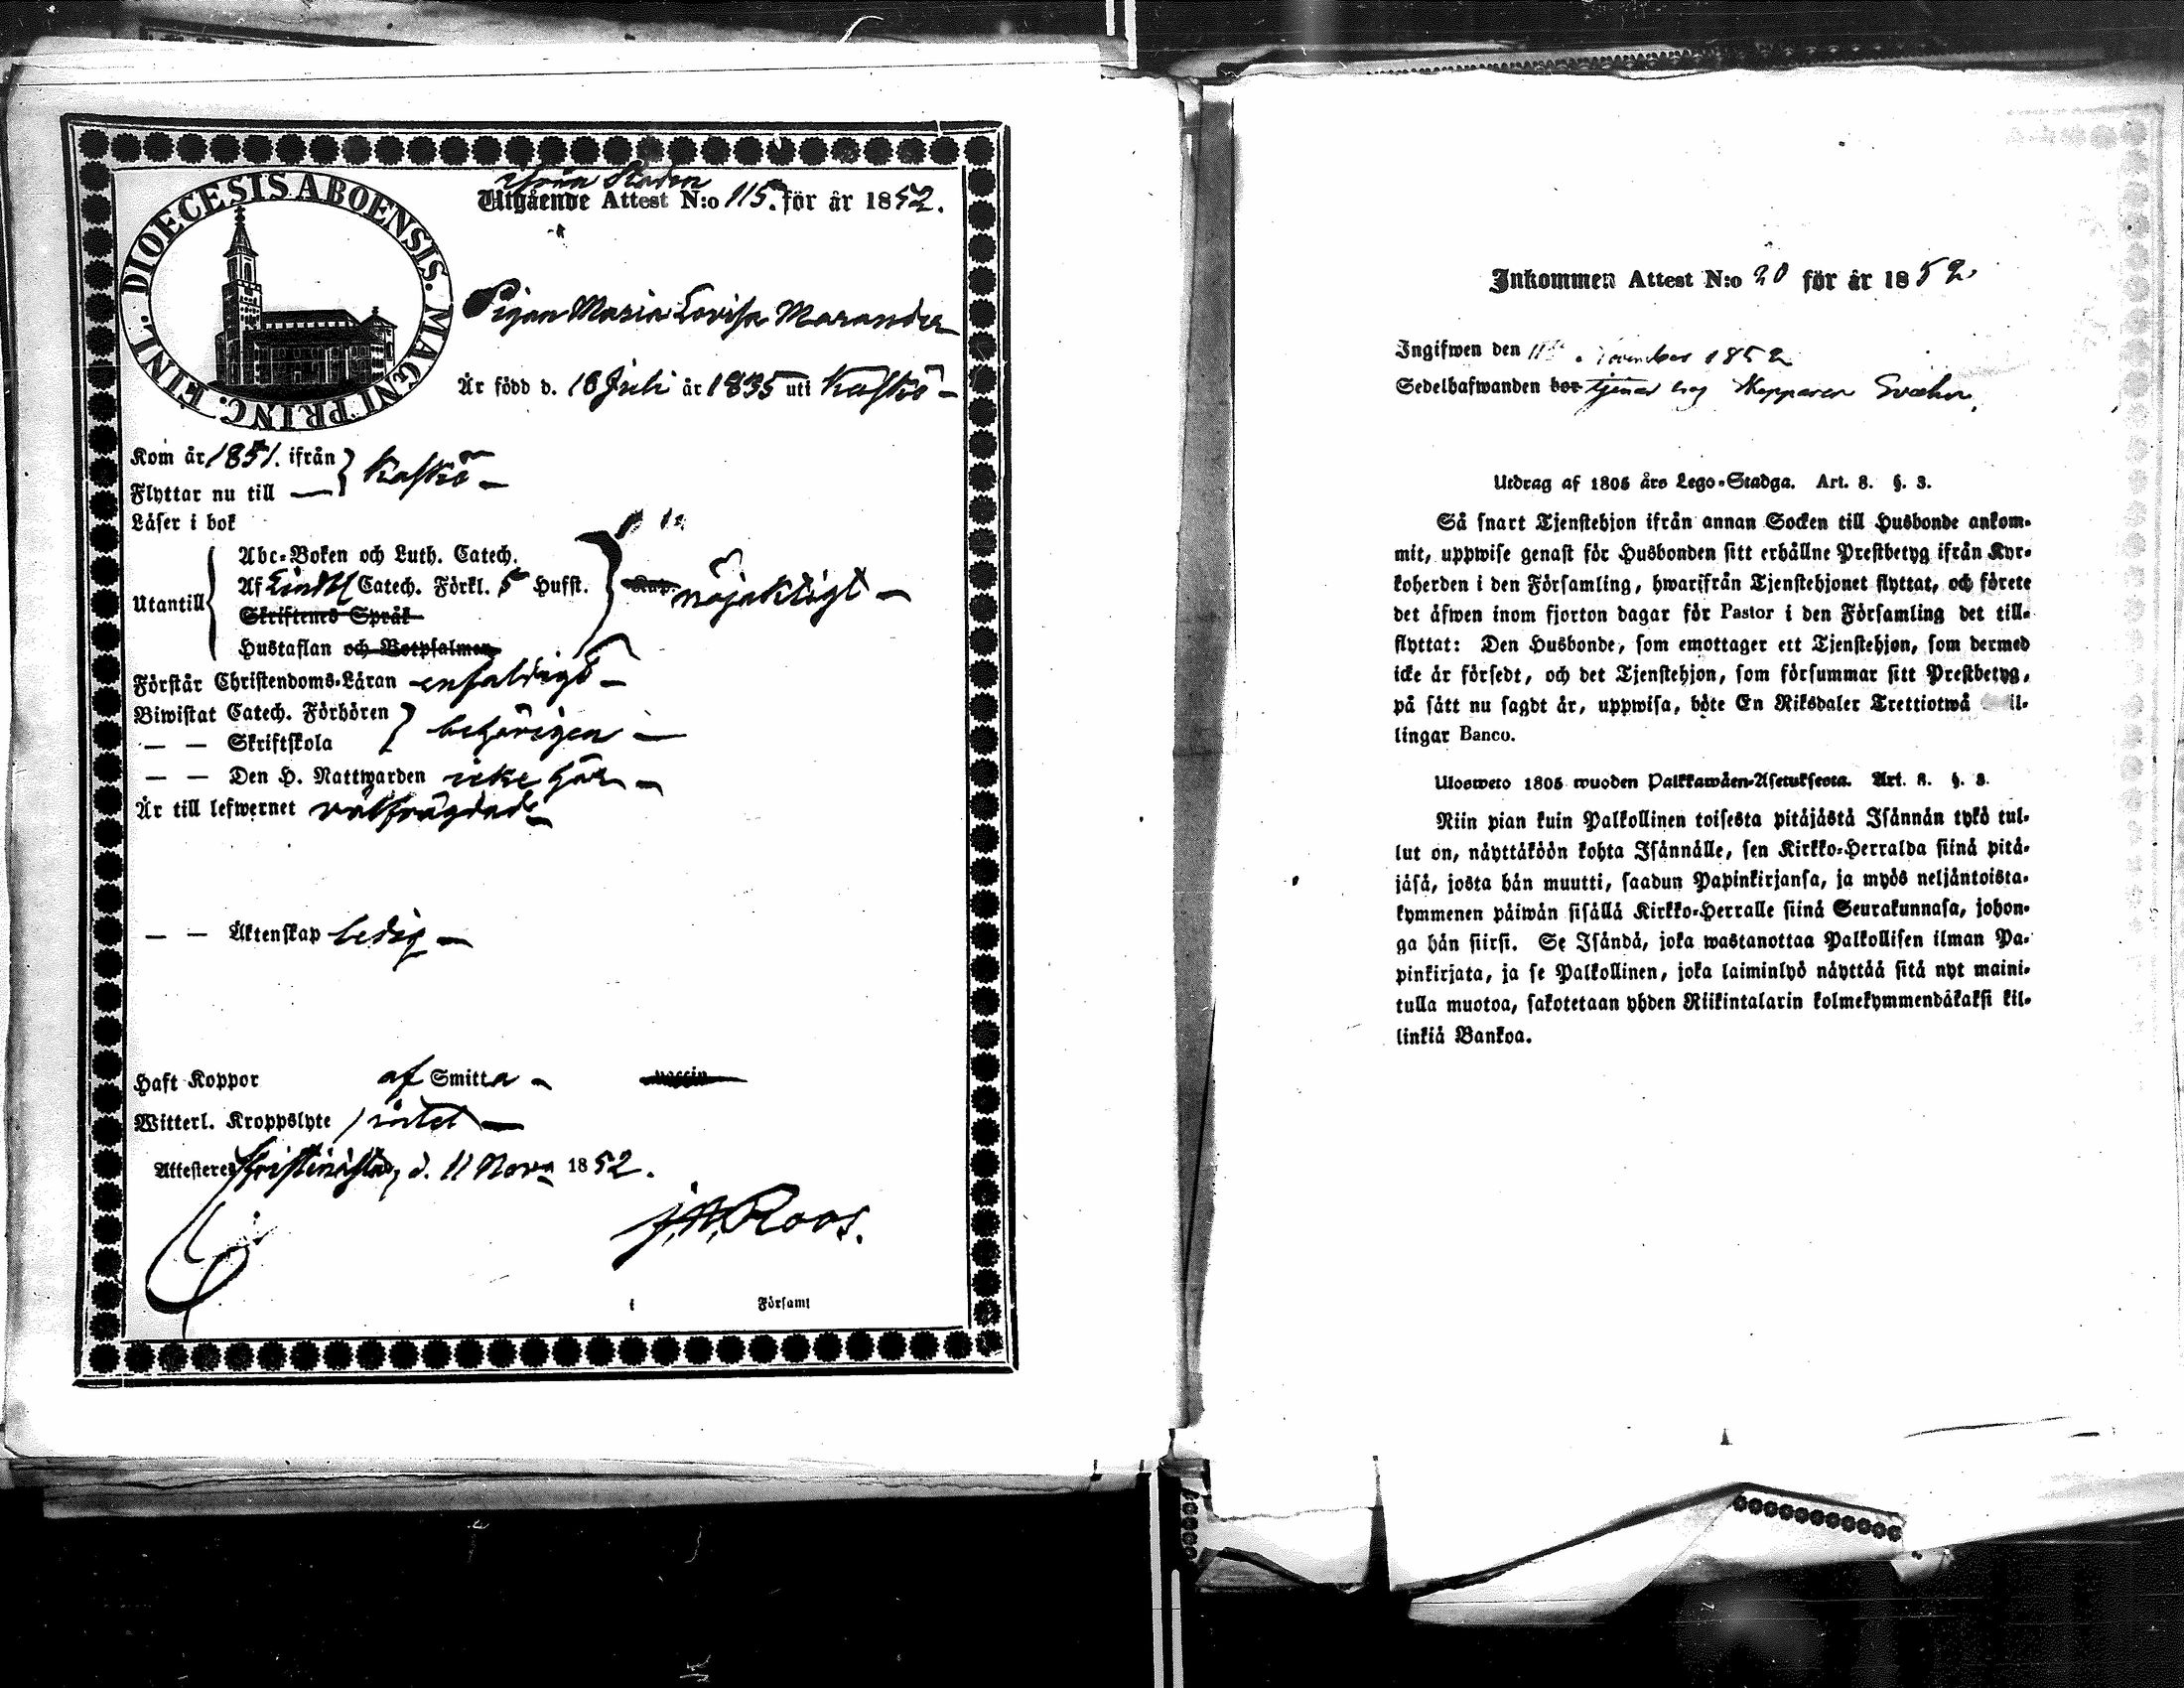 DIOECESIS ABOENSIS. MAGNI PRINC. FINL.
ifrån Staden
Utgående Attest N:o 115. för år 1852.
Pigan Maria Lovisa Marander
Är född d. 18 Juli år 1835 uti Kaskö —
Kom år 1851. ifrån } Kaskö —
Flyttar nu till —
Läser i bok
Abc-Boken och Luth. Catech.
Utantill { Af Lindbl Catech. Förkl. 5 Hufst. } nöjaktigt —
Skriftenes Språk
Hustaflan och Botpsalmen
Förstår Christendoms-Läran enfaldigt —
Biwistat Catech. Förhören } behörigen —
— — Skriftskola
— — Den H. Nattwarden icke här —
Är till lefwernet välfrägdad —
— — Äktenskap ledig —
Haft Koppor af Smitta — vaccin
Witterl. Kroppslyte
Attesterer Christinestad, d. 11 Nov. 1852.
Roos.
i Församl
Inkommen Attest N:o 20 för år 1852.
Ingifwen den November 1852
Sedelhafwanden bor tjenar hos Skepparen Svahn.
Utdrag af 1805 års Lego-Stadga. Art. 8. §. 3.
Så snart Tjenstehjon ifrån annan Socken till Husbonde ankom-
mit, uppwise genast för Husbonden sitt erhållne Prestbetyg ifrån Kyr-
koherden i den Församling, hwarifrån Tjenstehjonet flyttat, och förete
det äfwen inom fjorton dagar för Pastor i den Församling det till-
flyttat: Den Husbonde, som emottager ett Tjenstehjon, som dermed
icke är försedt, och det Tjenstehjon, som försummar sitt Prestbetyg,
på sätt nu sagdt är, uppwisa, böte En Riksdaler Trettiotwå il-
lingar Banco.
Ulosweto 1805 wuoden Palkkawäen-Asetuksesta. Art. 8. §. 3.
Niin pian kuin Palkollinen toisesta pitäjästä Isännän tykö tul-
lut on, näyttäköön kohta Isännälle, sen Kirkko-Herralda siinä pitä-
jäsä, josta hän muutti, saadun Papinkirjansa, ja myös neljäntoista-
kymmenen päiwän sisällä Kirkko-Herralle siinä Seurakunnasa, johon-
ga hän siirsi. Se Isändä, joka wastanottaa Palkollisen ilman Pa-
pinkirjata, ja se Palkollinen, joka laiminlyö näyttää sitä nyt maini-
tulla muotoa, sakotetaan yhden Riikintalarin kolmekymmendäkaksi kil-
linkiä Bankoa.